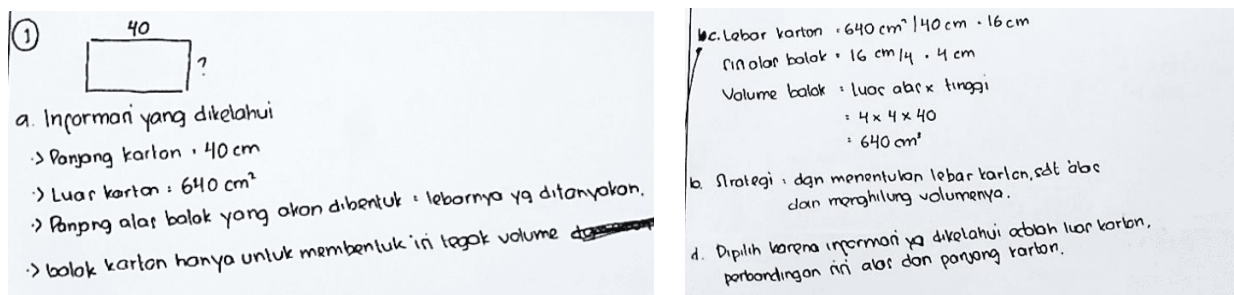 1
40
?
a. Informasi yang diketahui
-> Panjang karton = 40 cm
-> Luas karton = 640 cm²
-> Panjang alas balok yang akan dibentuk = lebarnya yg ditanyakan.
-> balok karton hanya untuk membentuk sisi tegak volume
c. Lebar karton = 640 cm² / 40 cm = 16 cm
sisi alas balok = 16 cm / 4 = 4 cm
Volume balok = luas alas x tinggi
= 4 x 4 x 40
= 640 cm³
b. Strategi : dgn menentukan lebar karton, sdt alas
dan menghitung volumenya.
d. Dipilih karena informasi yg diketahui adalah luas karton,
perbandingan sisi alas dan panjang karton.